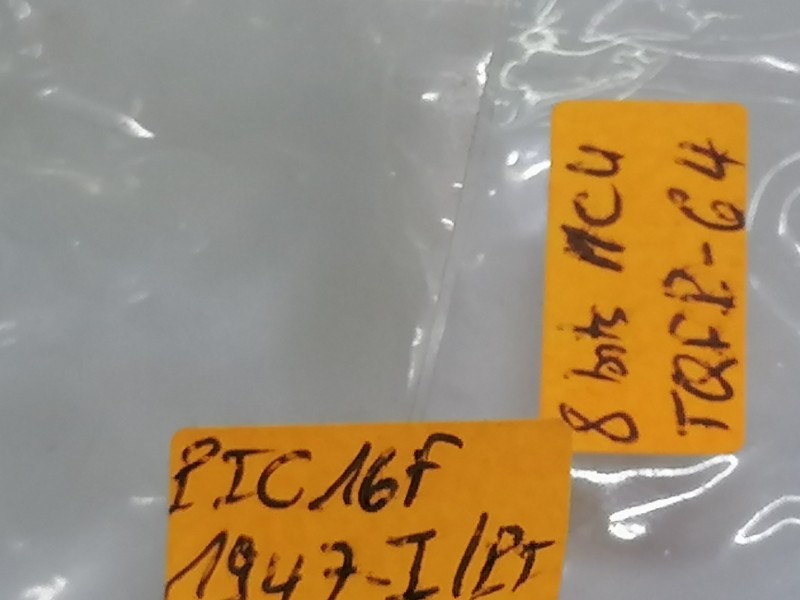 8 bits MCU
TQFP-64
PIC16F
1947-I/PT